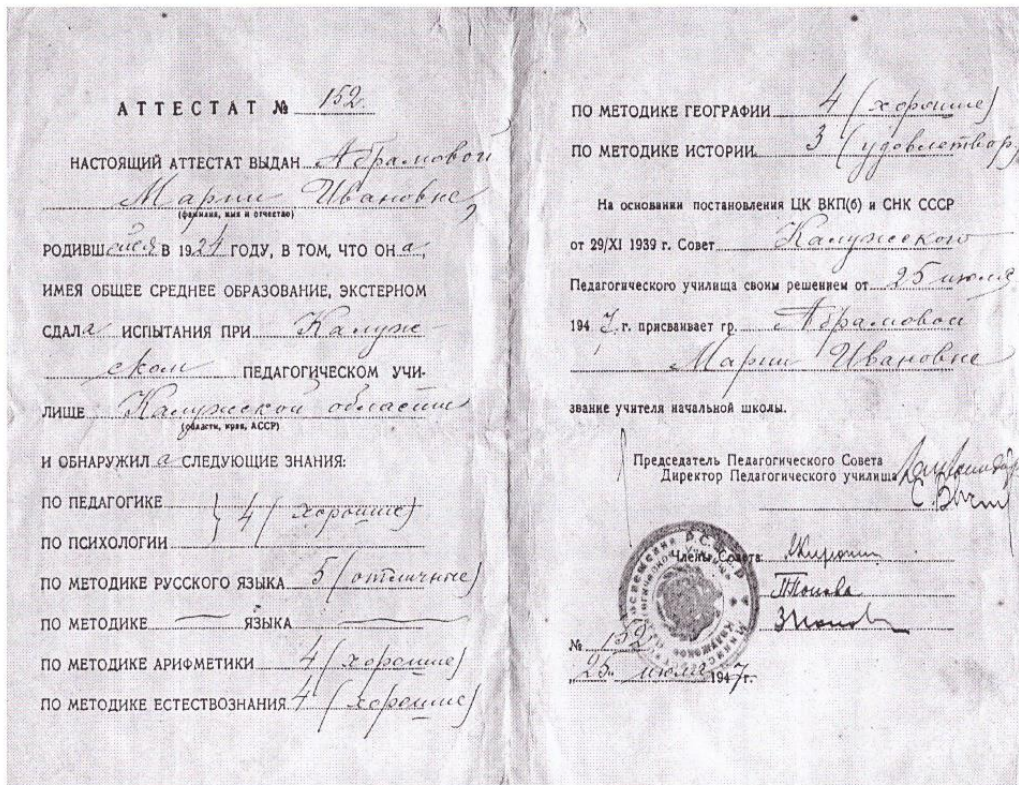 АТТЕСТАТ № 152.
НАСТОЯЩИЙ АТТЕСТАТ ВЫДАН Абрамовой
Марии Ивановне,
(фамилия, имя и отчество)
РОДИВШейся В 1924 ГОДУ, В ТОМ, ЧТО ОНа,
ИМЕЯ ОБЩЕЕ СРЕДНЕЕ ОБРАЗОВАНИЕ, ЭКСТЕРНОМ
СДАЛа ИСПЫТАНИЯ ПРИ Калуж-
ском ПЕДАГОГИЧЕСКОМ УЧИ-
ЛИЩЕ Калужской области
(области, края, АССР)
И ОБНАРУЖИЛа СЛЕДУЮЩИЕ ЗНАНИЯ:
ПО ПЕДАГОГИКЕ
4 (хорошие)
ПО ПСИХОЛОГИИ
ПО МЕТОДИКЕ РУССКОГО ЯЗЫКА 5 (отличные)
ПО МЕТОДИКЕ — ЯЗЫКА —
ПО МЕТОДИКЕ АРИФМЕТИКИ 4 (хорошие)
ПО МЕТОДИКЕ ЕСТЕСТВОЗНАНИЯ 4 (хорошие)
ПО МЕТОДИКЕ ГЕОГРАФИИ 4 (хорошие)
ПО МЕТОДИКЕ ИСТОРИИ 3 (удовлетвор.)
На основании постановления ЦК ВКП(б) и СНК СССР
от 29/XI 1939 г. Совет Калужского
Педагогического училища своим решением от 25 июля
1947 г. присваивает гр. Абрамовой
Марии Ивановне
звание учителя начальной школы.
Председатель Педагогического Совета
Директор Педагогического училища
Члены Совета:
Попова
№ 152
"25" июля 1947г.